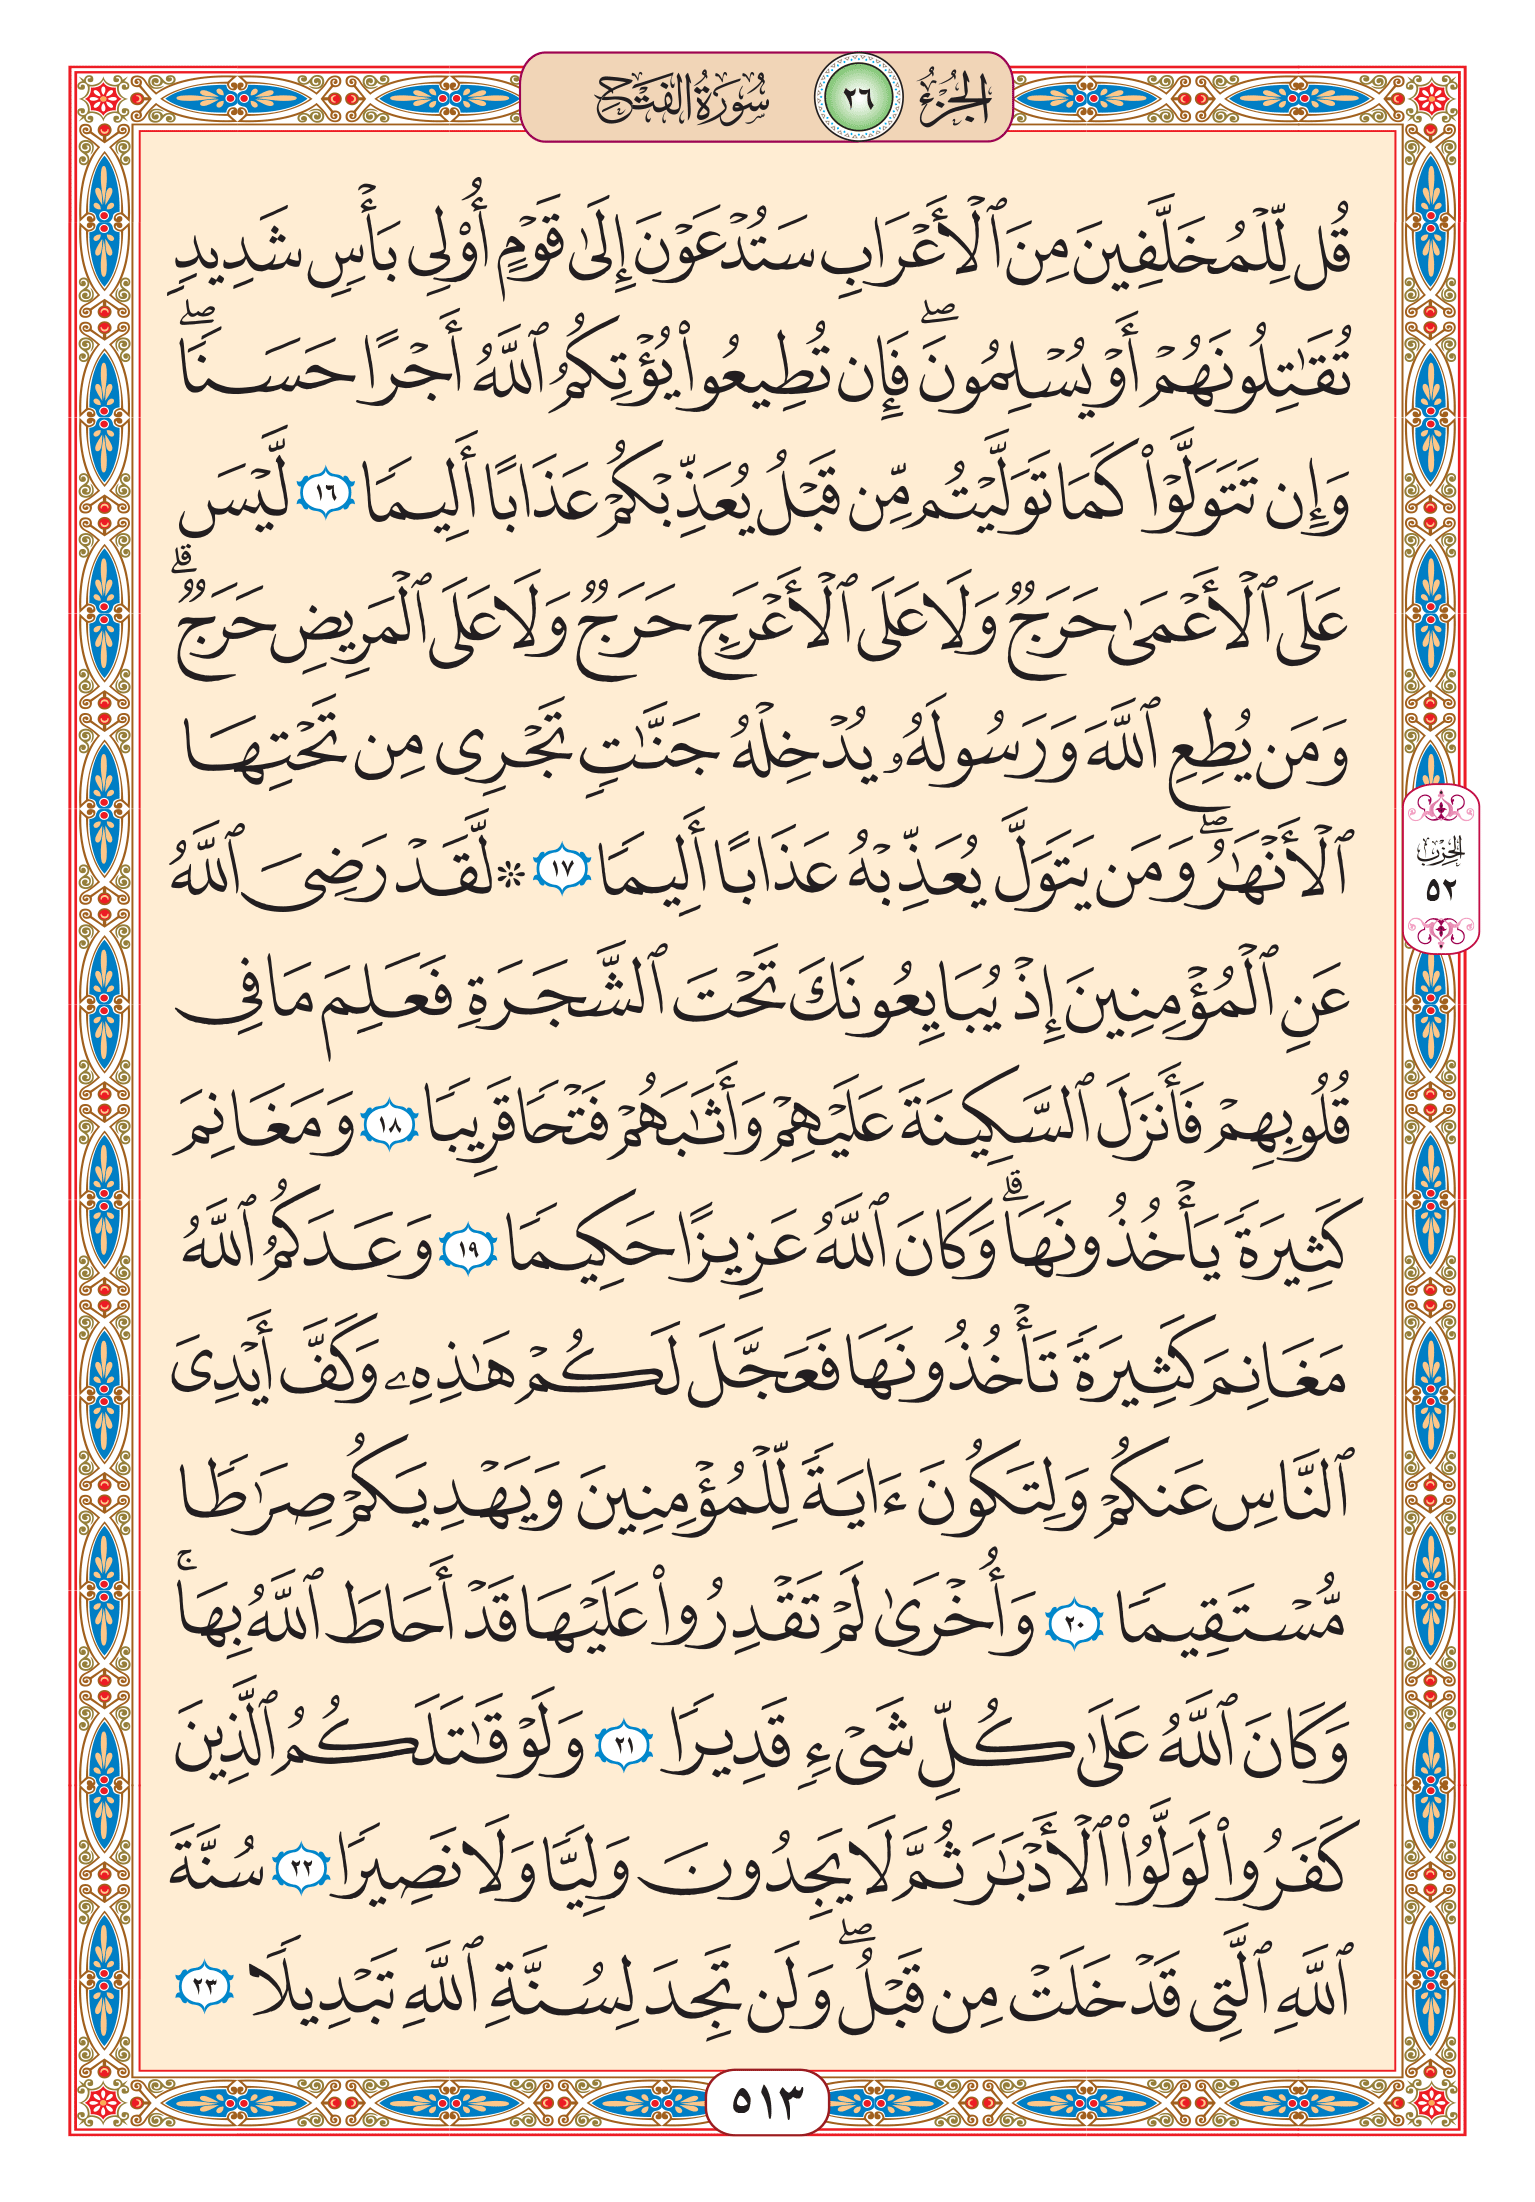 الجزء ٢٦ سورة الفتح
قُل لِّلْمُخَلَّفِينَ مِنَ ٱلْأَعْرَابِ سَتُدْعَوْنَ إِلَىٰ قَوْمٍ أُوْلِى بَأْسٍ شَدِيدٍ
تُقَـٰتِلُونَهُمْ أَوْ يُسْلِمُونَ ۖ فَإِن تُطِيعُوا۟ يُؤْتِكُمُ ٱللَّهُ أَجْرًا حَسَنًا ۖ
وَإِن تَتَوَلَّوْا۟ كَمَا تَوَلَّيْتُم مِّن قَبْلُ يُعَذِّبْكُمْ عَذَابًا أَلِيمًا ١٦ لَّيْسَ
عَلَى ٱلْأَعْمَىٰ حَرَجٌ وَلَا عَلَى ٱلْأَعْرَجِ حَرَجٌ وَلَا عَلَى ٱلْمَرِيضِ حَرَجٌ ۗ
وَمَن يُطِعِ ٱللَّهَ وَرَسُولَهُۥ يُدْخِلْهُ جَنَّـٰتٍ تَجْرِى مِن تَحْتِهَا
ٱلْأَنْهَـٰرُ ۖ وَمَن يَتَوَلَّ يُعَذِّبْهُ عَذَابًا أَلِيمًا ١٧ * لَّقَدْ رَضِىَ ٱللَّهُ
عَنِ ٱلْمُؤْمِنِينَ إِذْ يُبَايِعُونَكَ تَحْتَ ٱلشَّجَرَةِ فَعَلِمَ مَا فِى
قُلُوبِهِمْ فَأَنزَلَ ٱلسَّكِينَةَ عَلَيْهِمْ وَأَثَـٰبَهُمْ فَتْحًا قَرِيبًا ١٨ وَمَغَانِمَ
كَثِيرَةً يَأْخُذُونَهَا ۗ وَكَانَ ٱللَّهُ عَزِيزًا حَكِيمًا ١٩ وَعَدَكُمُ ٱللَّهُ
مَغَانِمَ كَثِيرَةً تَأْخُذُونَهَا فَعَجَّلَ لَكُمْ هَـٰذِهِۦ وَكَفَّ أَيْدِىَ
ٱلنَّاسِ عَنكُمْ وَلِتَكُونَ ءَايَةً لِّلْمُؤْمِنِينَ وَيَهْدِيَكُمْ صِرَٰطًا
مُّسْتَقِيمًا ٢٠ وَأُخْرَىٰ لَمْ تَقْدِرُوا۟ عَلَيْهَا قَدْ أَحَاطَ ٱللَّهُ بِهَا ۚ
وَكَانَ ٱللَّهُ عَلَىٰ كُلِّ شَىْءٍ قَدِيرًا ٢١ وَلَوْ قَـٰتَلَكُمُ ٱلَّذِينَ
كَفَرُوا۟ لَوَلَّوُا۟ ٱلْأَدْبَـٰرَ ثُمَّ لَا يَجِدُونَ وَلِيًّا وَلَا نَصِيرًا ٢٢ سُنَّةَ
ٱللَّهِ ٱلَّتِى قَدْ خَلَتْ مِن قَبْلُ ۖ وَلَن تَجِدَ لِسُنَّةِ ٱللَّهِ تَبْدِيلًا ٢٣
الحزب
٥٢
٥١٣